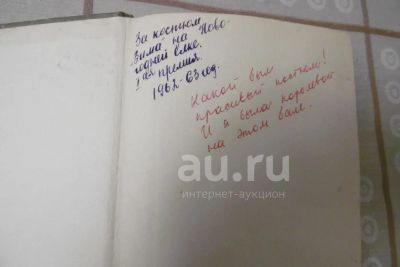 За костюм
"Зима" на Ново-
годней елке.
I ая премия.
1962-63 год.
Какой был
красивый костюм!
И я была королевой
на этом бале.
au.ru
интернет-аукцион